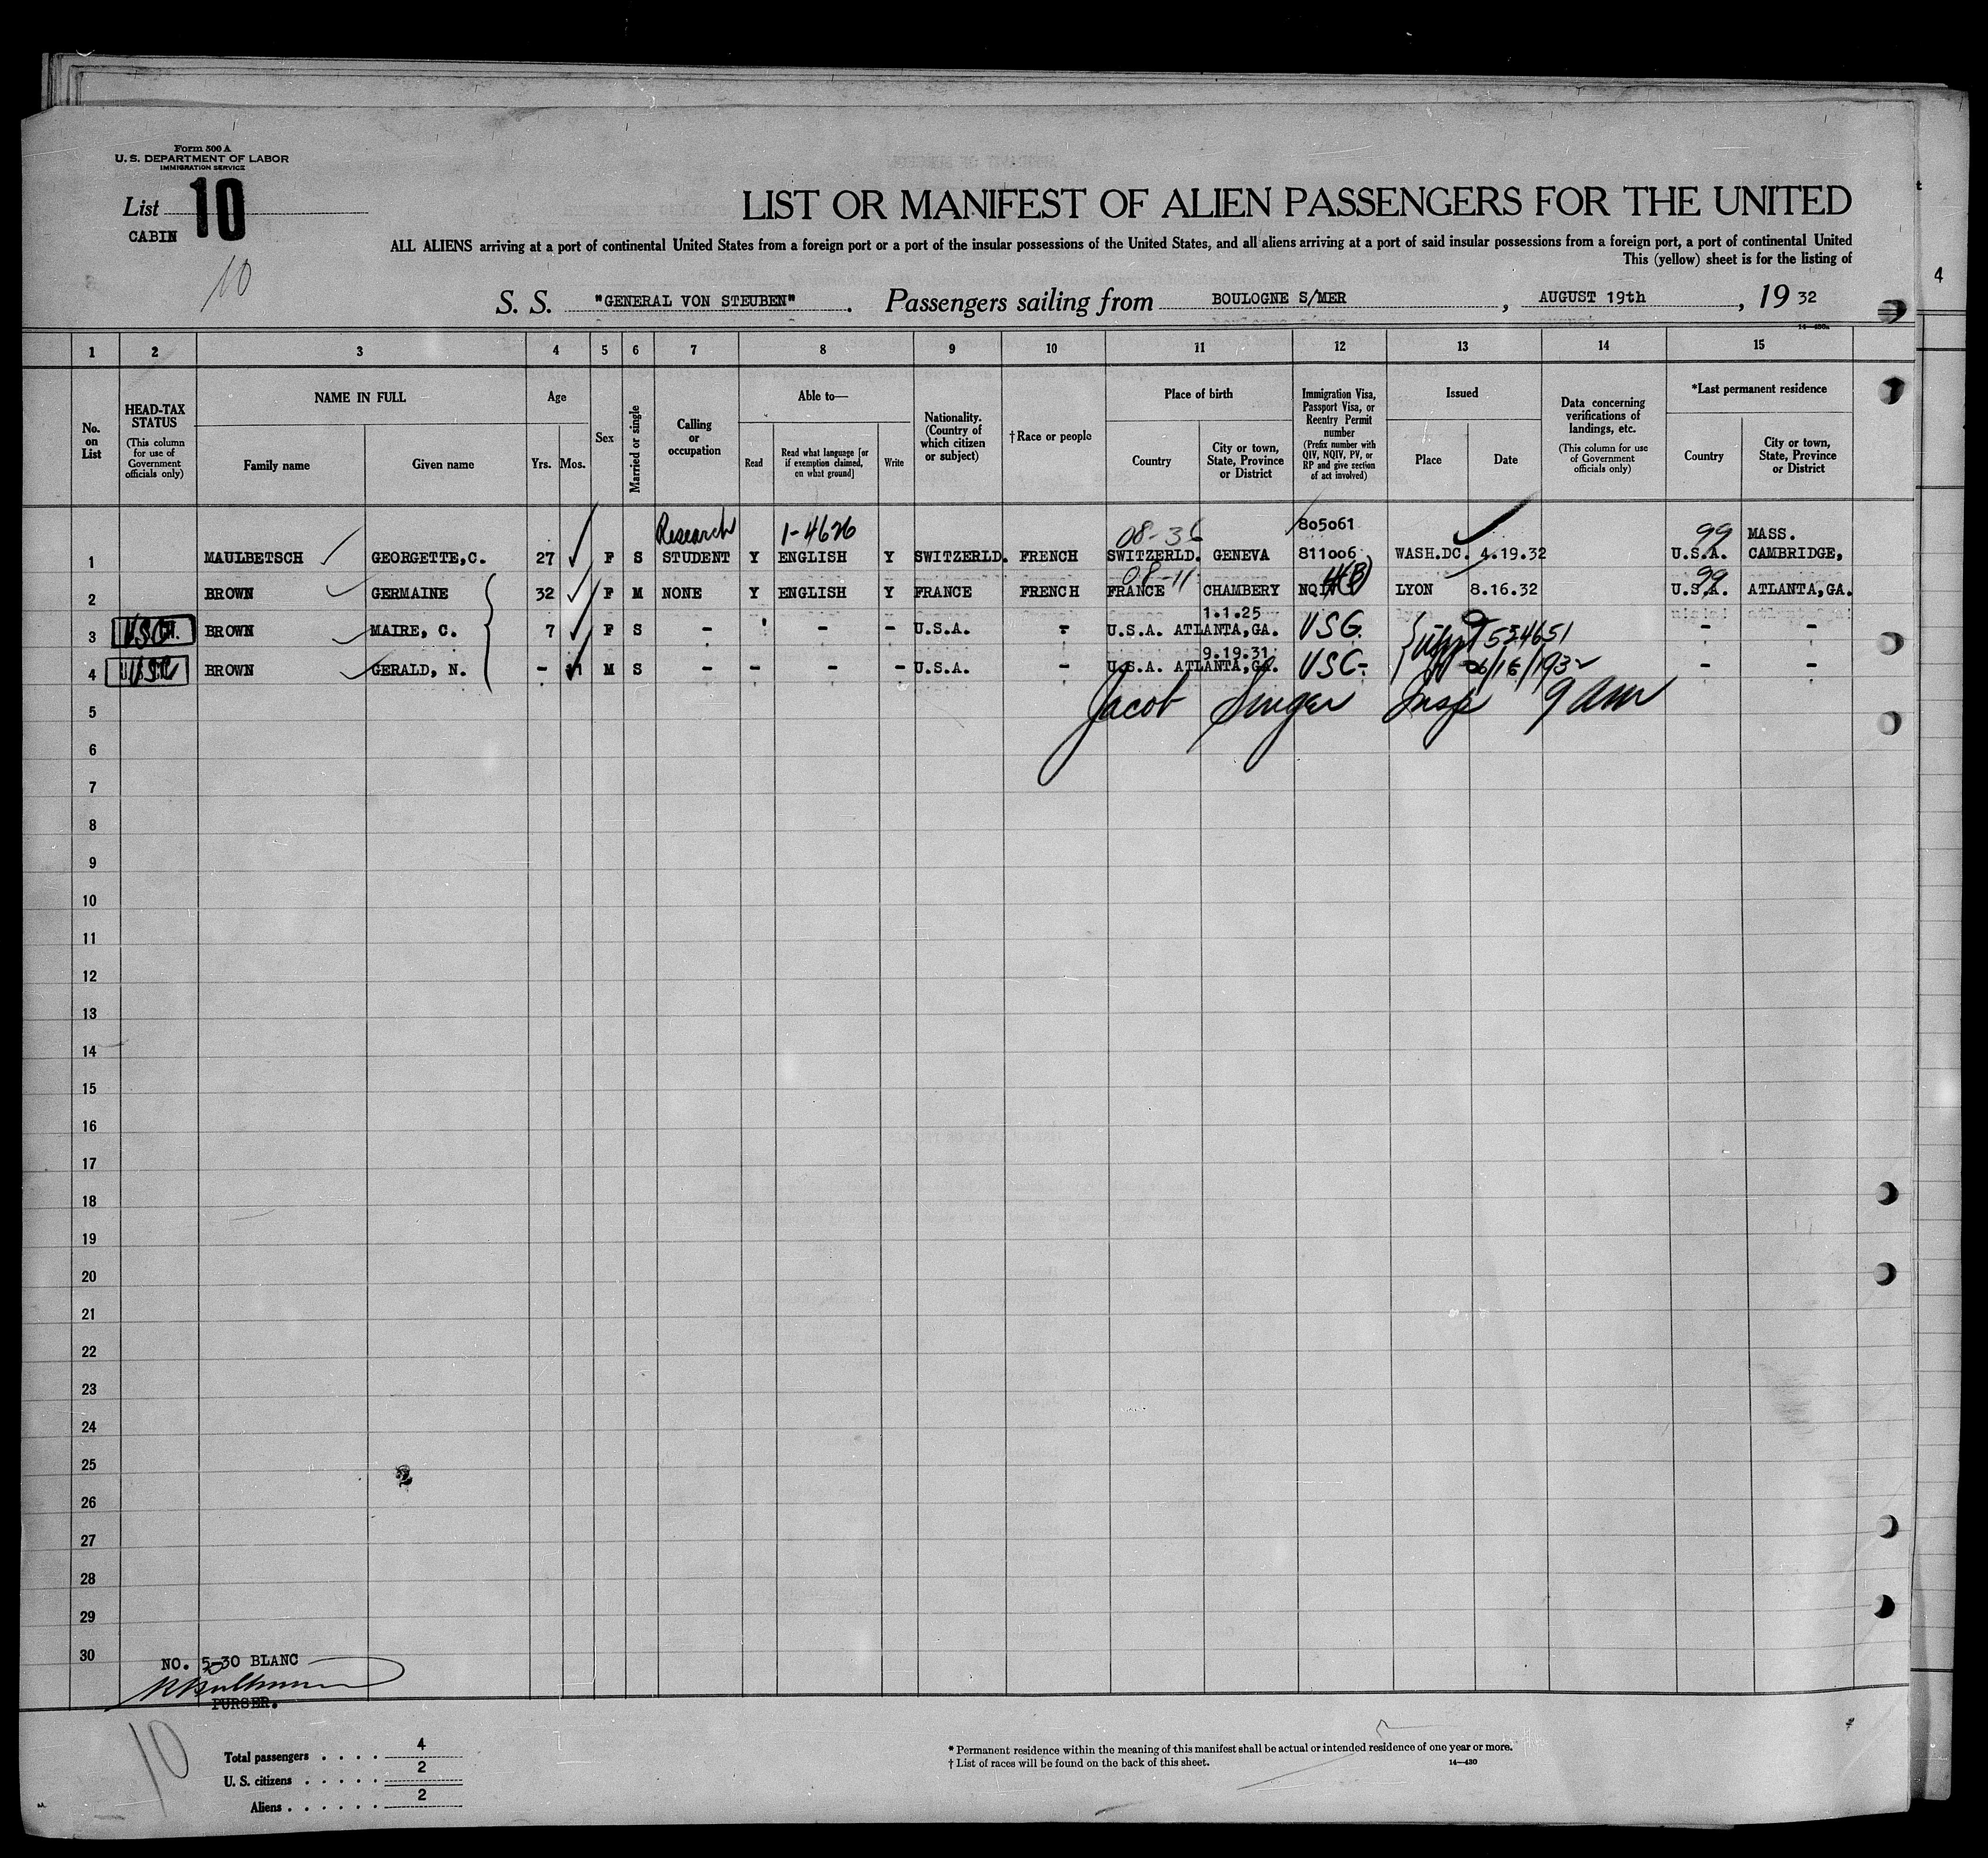 Form 500 A
U. S. DEPARTMENT OF LABOR
IMMIGRATION SERVICE
List 10
CABIN
10
LIST OR MANIFEST OF ALIEN PASSENGERS FOR THE UNITED
ALL ALIENS arriving at a port of continental United States from a foreign port or a port of the insular possessions of the United States, and all aliens arriving at a port of said insular possessions from a foreign port, a port of continental United
This (yellow) sheet is for the listing of
4
S. S. "GENERAL VON STEUBEN". Passengers sailing from BOULOGNE S/MER, AUGUST 19th, 19 32
14—430a
1 2 3 4 5 6 7 8 9 10 11 12 13 14 15
No. on List
HEAD-TAX STATUS
(This column for use of Government officials only)
NAME IN FULL
Family name Given name
Age
Yrs. Mos.
Sex
Married or single
Calling or occupation
Able to—
Read
Read what language [or if exemption claimed, on what ground]
Write
Nationality. (Country of which citizen or subject)
†Race or people
Place of birth
Country
City or town, State, Province or District
Immigration Visa, Passport Visa, or Reentry Permit number
(Prefix number with QIV, NQIV, PV, or RP and give section of act involved)
Issued
Place Date
Data concerning verifications of landings, etc.
(This column for use of Government officials only)
*Last permanent residence
Country
City or town, State, Province or District
Research 1-4626 08-36 805061 99 MASS.
1 MAULBETSCH GEORGETTE,C. 27 F S STUDENT Y ENGLISH Y SWITZERLD. FRENCH SWITZERLD. GENEVA 811006 WASH.DC. 4.19.32 U.S.A. CAMBRIDGE,
08-11 4(B) 99
2 BROWN GERMAINE 32 F M NONE Y ENGLISH Y FRANCE FRENCH FRANCE CHAMBERY NQIV LYON 8.16.32 U.S.A. ATLANTA,GA.
1.1.25
3 USC BROWN MAIRE, C. 7 F S - - - - U.S.A. - U.S.A. ATLANTA,GA. USC. 534651 - -
9.19.31
4 USC BROWN GERALD, N. - 11 M S - - - - U.S.A. - U.S.A. ATLANTA,GA. USC- 6/16/1932 - -
5 Jacob Singer Insp 9 am
6
7
8
9
10
11
12
13
14
15
16
17
18
19
20
21
22
23
24
25
26
27
28
29
30
NO. 5-30 BLANC
PURSER.
10
Total passengers . . . . 4
U. S. citizens . . . . . 2
Aliens . . . . . . 2
* Permanent residence within the meaning of this manifest shall be actual or intended residence of one year or more.
† List of races will be found on the back of this sheet.
14—430